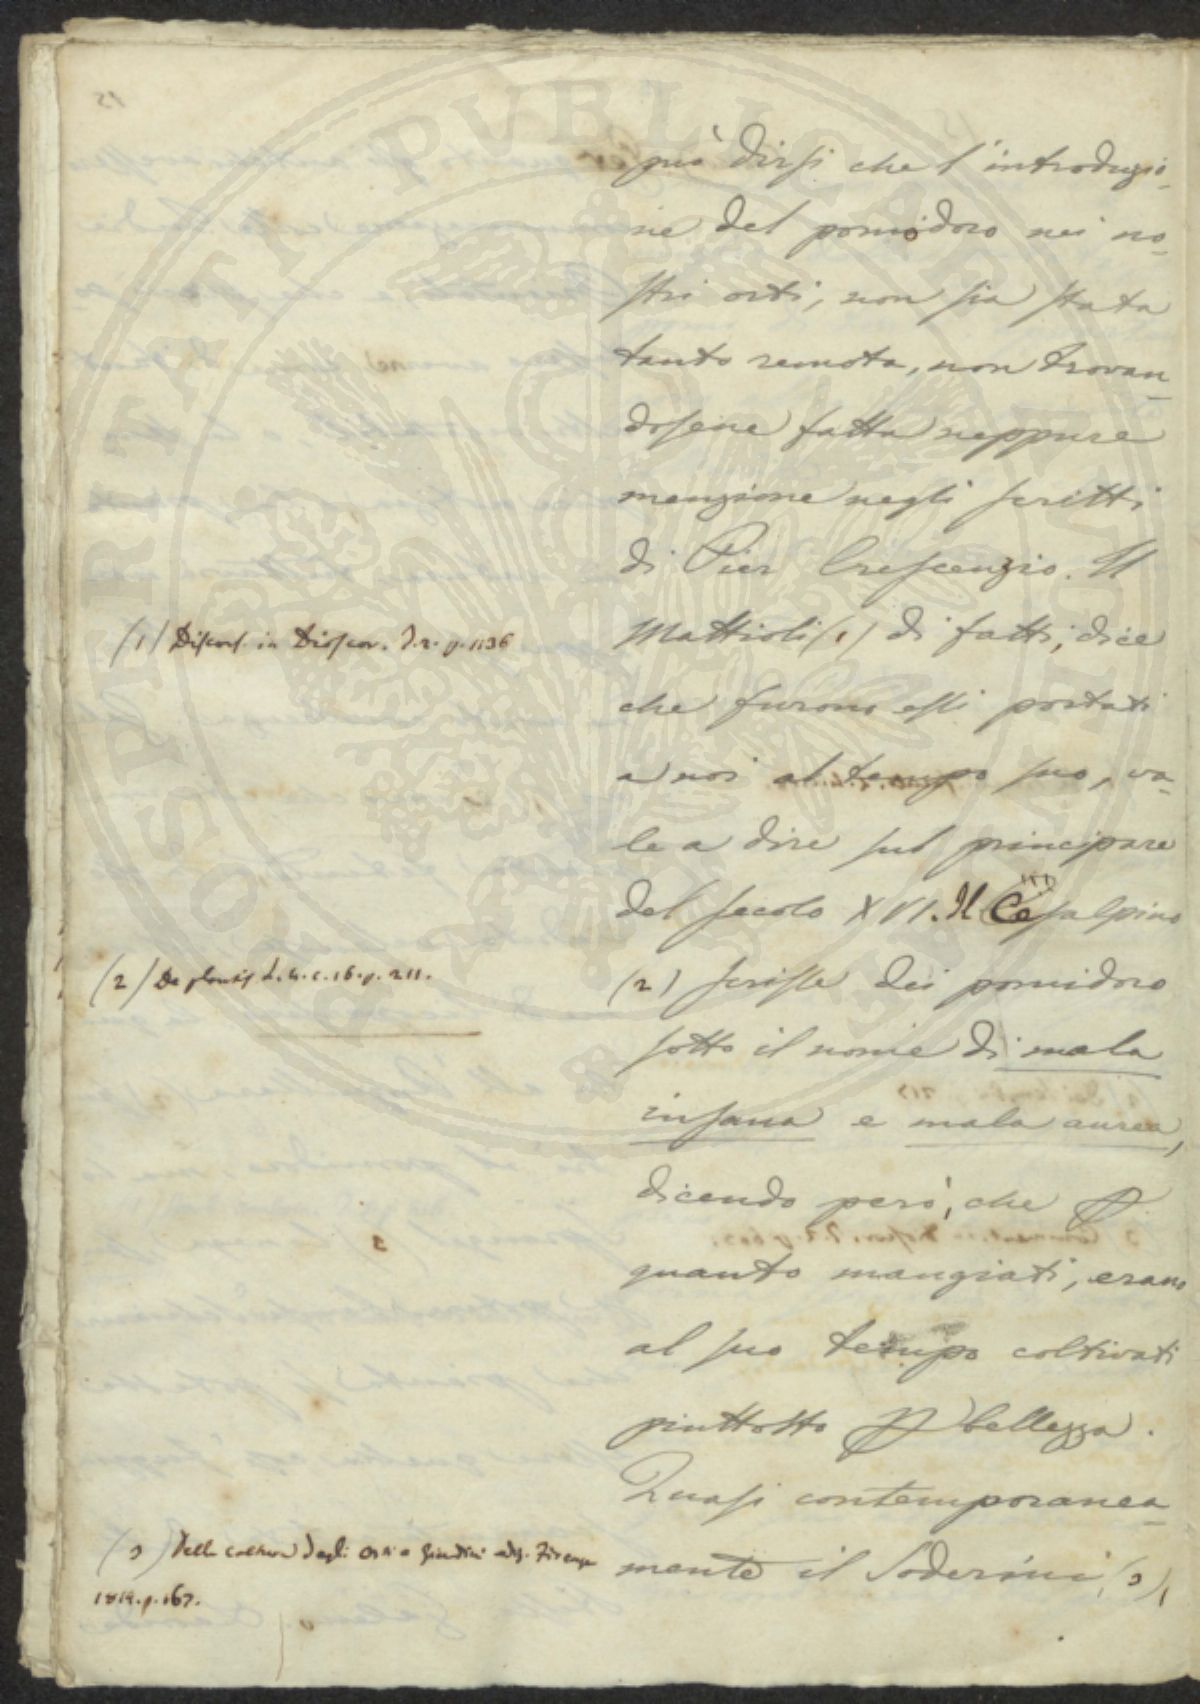 può dirsi che l'introduzio-
ne del pomidoro nei no-
stri orti, non sia stata
tanto remota, non trovan-
dosene fatta neppure
menzione negli scritti
di Pier Crescenzio. Il
Mattioli (1) di fatti, dice
che furono essi portati
a noi al tempo suo, va-
le a dire sul principare
del secolo XVI. Il Cesalpino
(2) scrisse dei pomidoro
sotto il nome di mala
insana e mala aurea,
dicendo però, che
quanto mangiati, erano
al suo tempo coltivati
piuttosto bellezza.
Quasi contemporanea-
mente il Soderini (3),
(1) Discors. in Dioscor. p. 1136
(2) De plantis L. 4. c. 16. p. 211.
(3) Della coltura degli Orti e Giardini Firenze
p. 167.
PROSPERITATI PUBLICAE